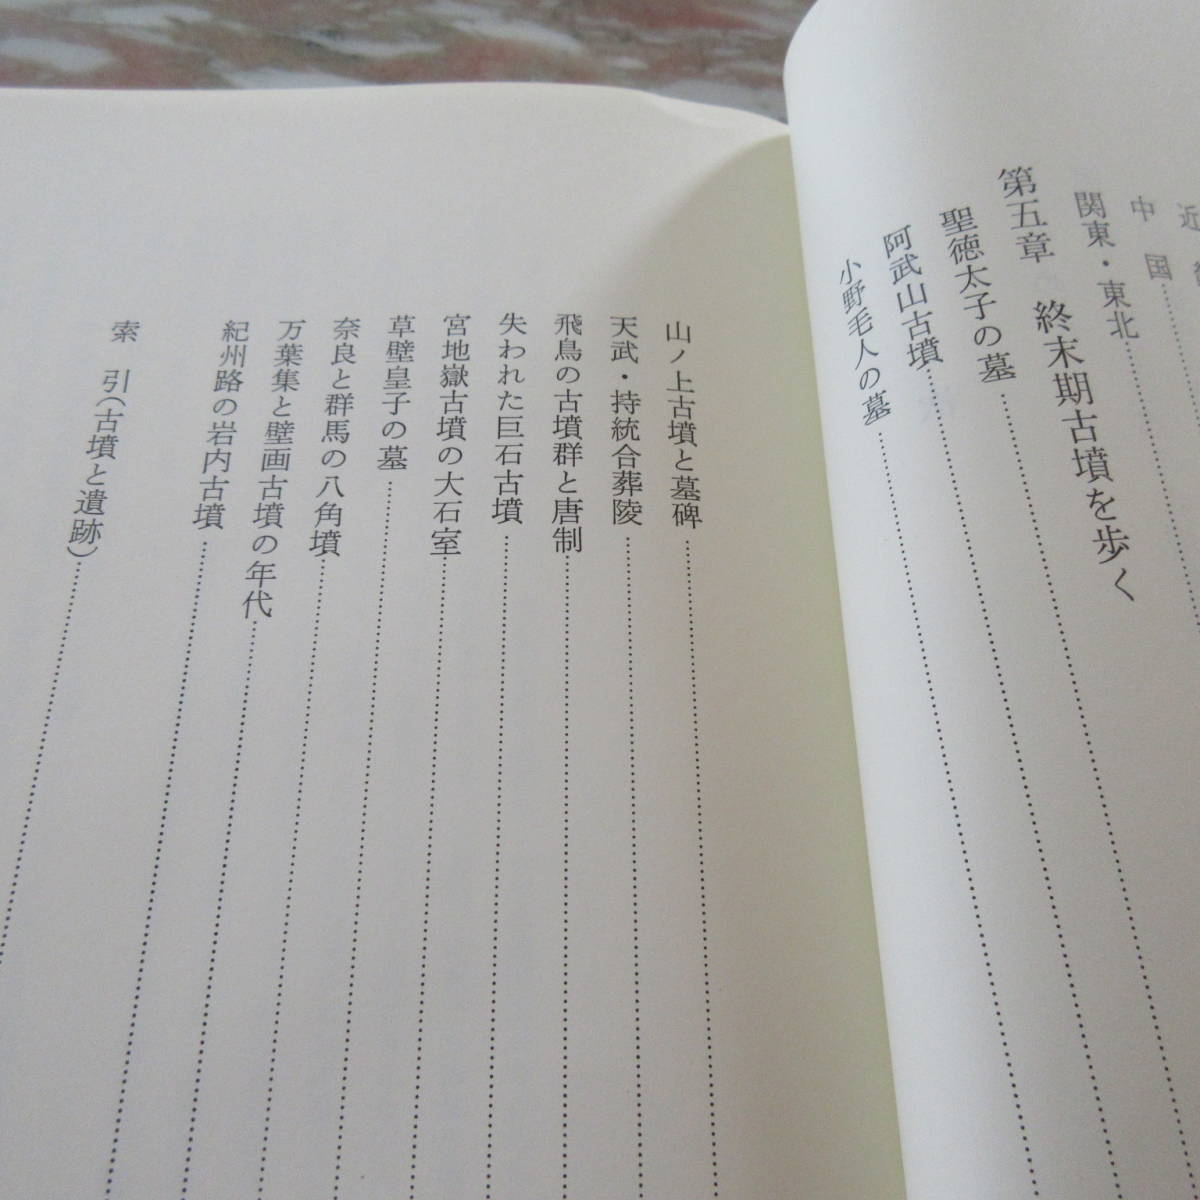 近
中国
関東・東北
第五章 終末期古墳を歩く
聖徳太子の墓
阿武山古墳
小野毛人の墓
山ノ上古墳と墓碑
天武・持統合葬陵
飛鳥の古墳群と唐制
失われた巨石古墳
宮地嶽古墳の大石室
草壁皇子の墓
奈良と群馬の八角墳
万葉集と壁画古墳の年代
紀州路の岩内古墳
索 引(古墳と遺跡)